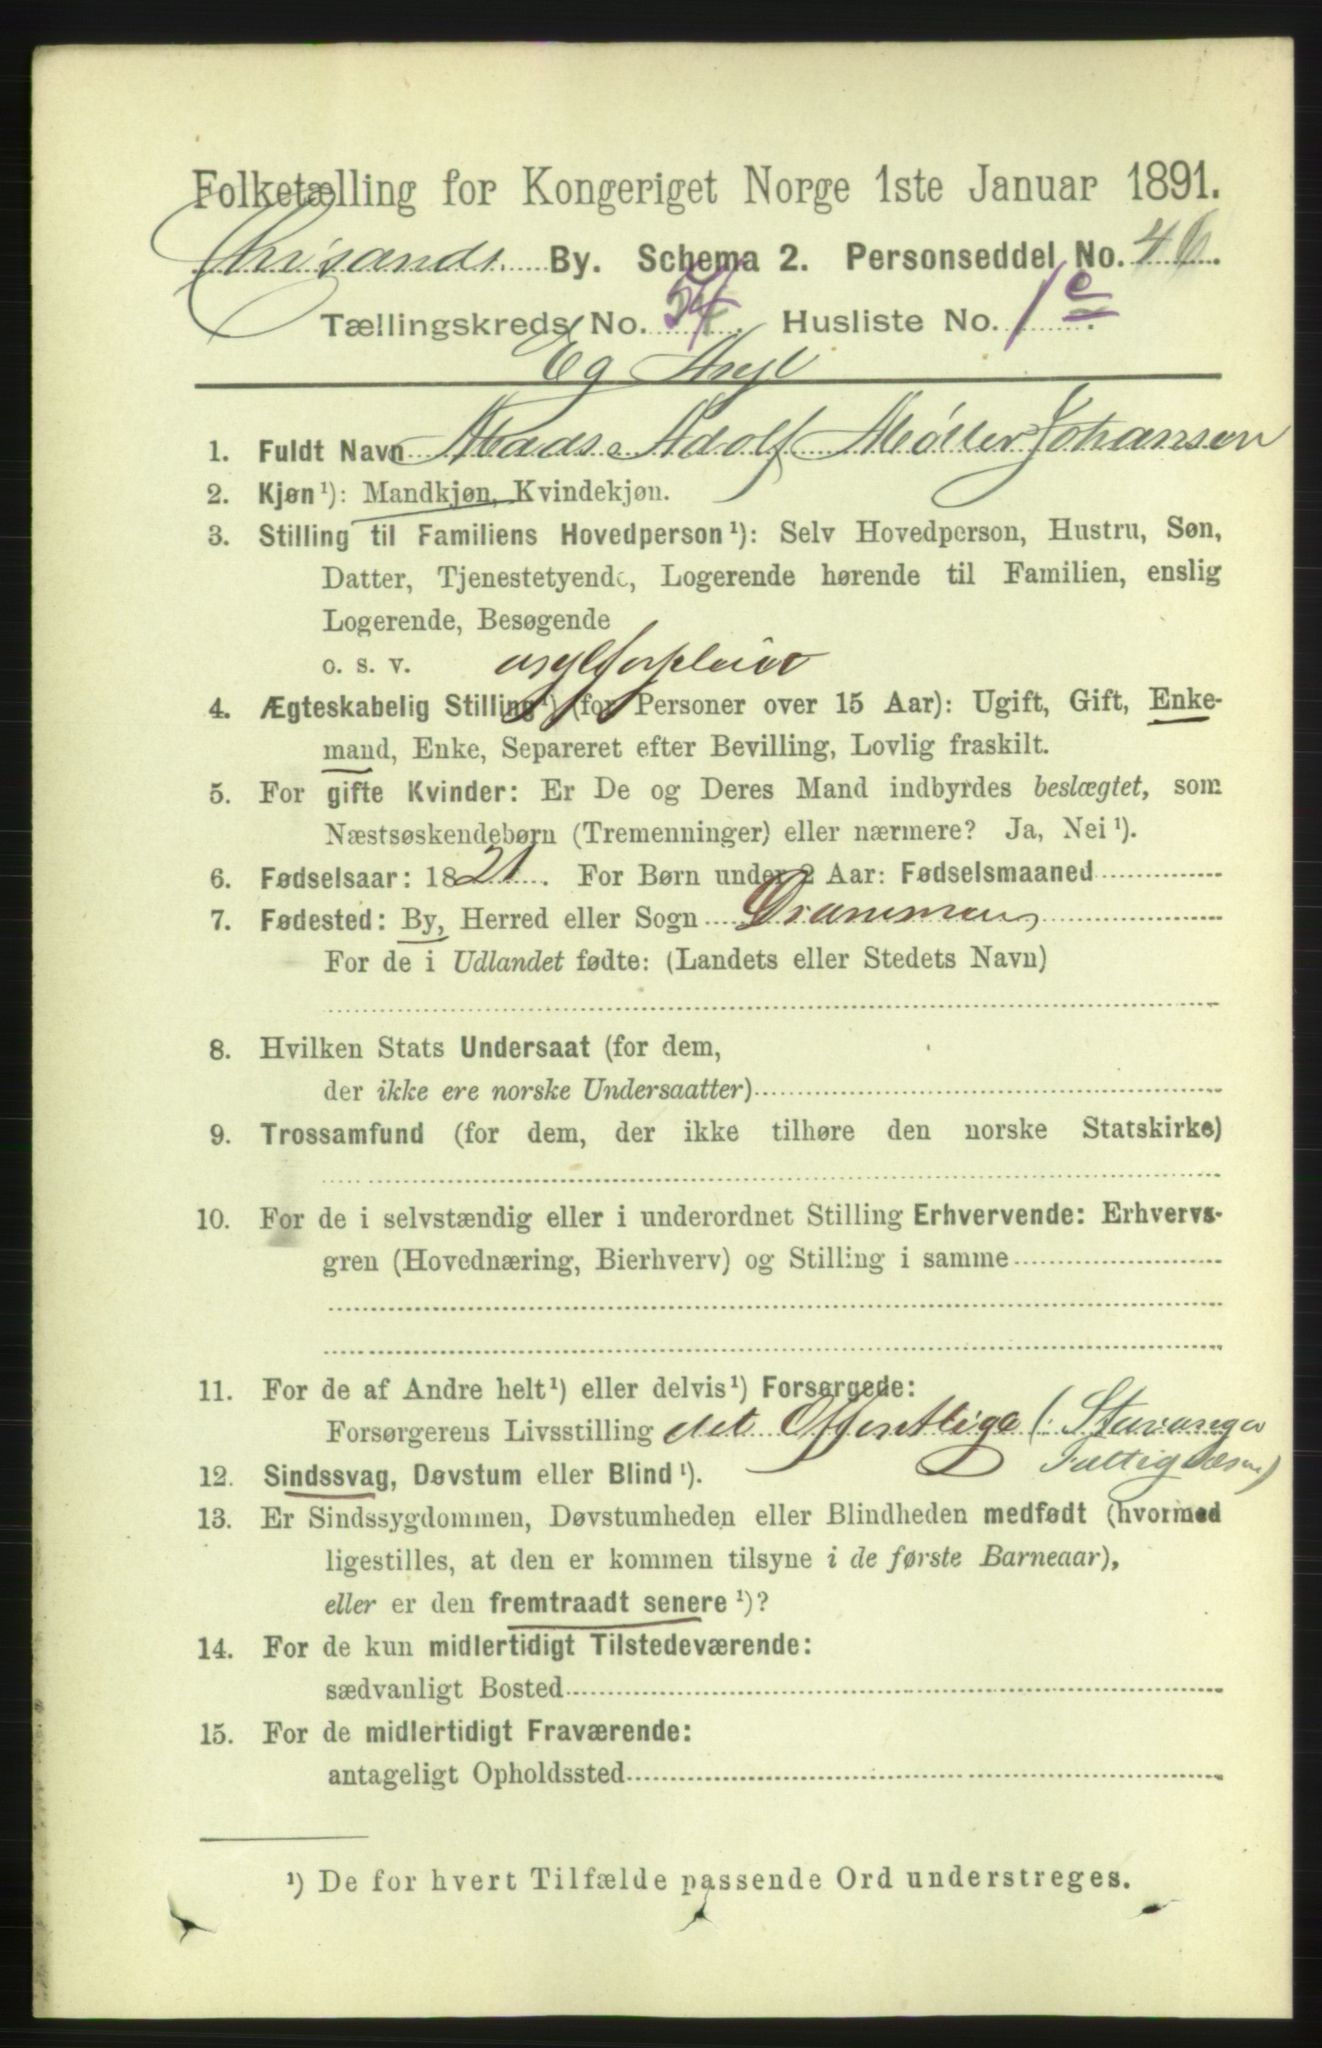 Folketælling for Kongeriget Norge 1ste Januar 1891.
Chrisands By. Schema 2. Personseddel No. 46.
Tællingskreds No. 54. Husliste No. 1e.
Eg Asyl
1. Fuldt Navn Mads Adolf Møller Johansen
2. Kjøn ¹): Mandkjøn, Kvindekjøn.
3. Stilling til Familiens Hovedperson ¹): Selv Hovedperson, Hustru, Søn,
Datter, Tjenestetyende, Logerende hørende til Familien, enslig
Logerende, Besøgende
o. s. v. asylforpleiet
4. Ægteskabelig Stilling ¹) (for Personer over 15 Aar): Ugift, Gift, Enke-
mand, Enke, Separeret efter Bevilling, Lovlig fraskilt.
5. For gifte Kvinder: Er De og Deres Mand indbyrdes beslægtet, som
Næstsøskendebørn (Tremenninger) eller nærmere? Ja, Nei ¹).
6. Fødselsaar: 1821. For Børn under 2 Aar: Fødselsmaaned
7. Fødested: By, Herred eller Sogn Drammen
For de i Udlandet fødte: (Landets eller Stedets Navn)
8. Hvilken Stats Undersaat (for dem,
der ikke ere norske Undersaatter)
9. Trossamfund (for dem, der ikke tilhøre den norske Statskirke)
10. For de i selvstændig eller i underordnet Stilling Erhvervende: Erhvervs-
gren (Hovednæring, Bierhverv) og Stilling i samme
11. For de af Andre helt ¹) eller delvis ¹) Forsørgede:
Forsørgerens Livsstilling det Offentlige (: Stavanger
Fattigvæsen)
12. Sindssvag, Døvstum eller Blind ¹).
13. Er Sindssygdommen, Døvstumheden eller Blindheden medfødt (hvormed
ligestilles, at den er kommen tilsyne i de første Barneaar),
eller er den fremtraadt senere ¹)?
14. For de kun midlertidigt Tilstedeværende:
sædvanligt Bosted
15. For de midlertidigt Fraværende:
antageligt Opholdssted
¹) De for hvert Tilfælde passende Ord understreges.